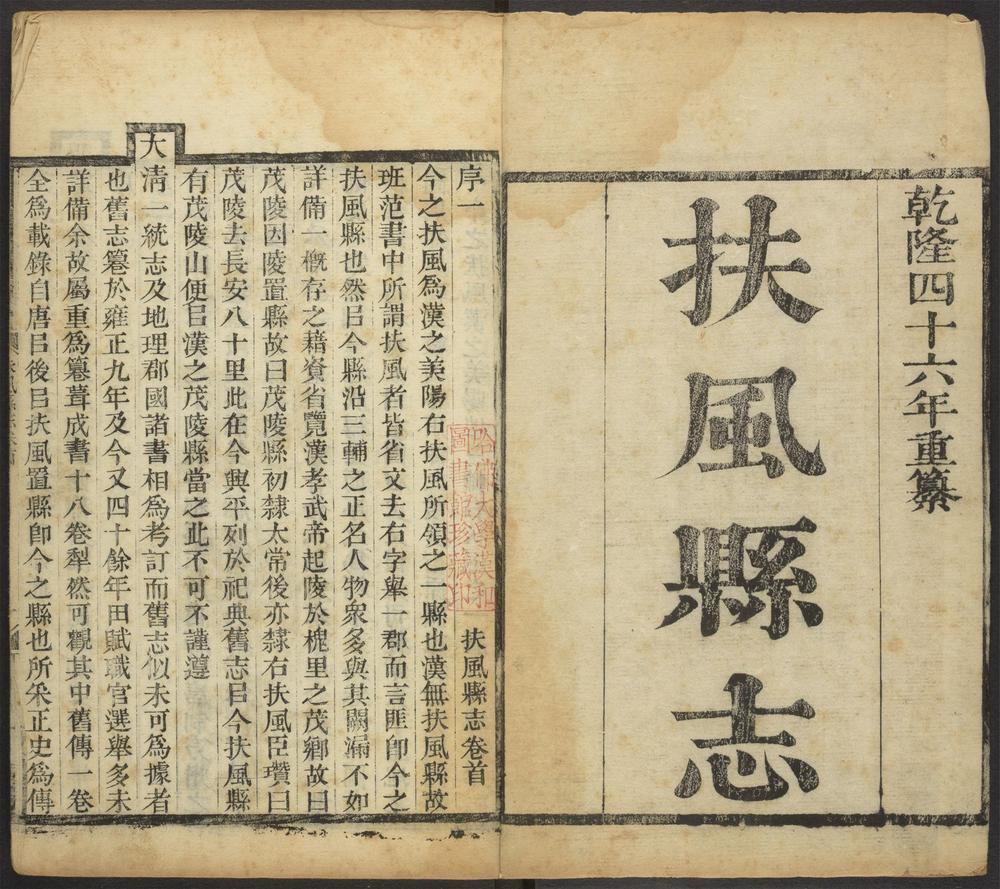 乾隆四十六年重纂
扶風縣志
序一 扶風縣志卷首
今之扶風爲漢之美陽右扶風所領之一縣也漢無扶風縣故
班范書中所謂扶風者皆省文去右字舉一郡而言匪卽今之
扶風縣也然㠯今縣沿三輔之正名人物衆多與其闕漏不如
詳備一概存之藉資省覽漢孝武帝起陵於槐里之茂鄉故曰
茂陵因陵置縣故曰茂陵縣初隸太常後亦隸右扶風臣瓚曰
茂陵去長安八十里此在今興平列於祀典舊志㠯今扶風縣
有茂陵山便㠯漢之茂陵縣當之此不可不謹遵
大清一統志及地理郡國諸書相爲考訂而舊志似未可爲據者
也舊志纂於雍正九年及今又四十餘年田賦職官選舉多未
詳備余故屬重爲纂葺成書十八卷犁然可觀其中舊傳一卷
全爲載錄自唐㠯後㠯扶風置縣卽今之縣也所采正史爲傳
哈佛大學漢和
圖書館珍藏印